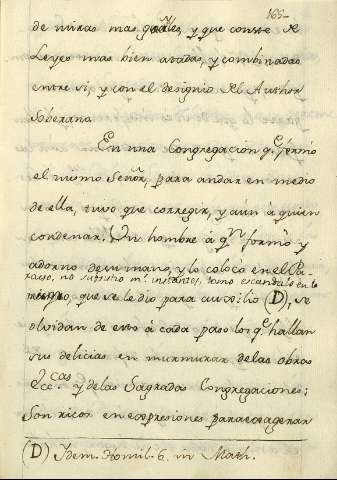 166
de miras mas grales, y que conste de
Leyes mas bien atadas, y combinadas
entre si, y con el designio del Author
Soberano.
En una Congregacion qe. formó
el mismo Señor, para andar en medio
de ella, tuvo que corregir, y aún á quien
condenar. Un hombre á qn. formó y
adornó de su mano, y lo colocó en el Pa-
raiso, no subsistio ms. instantes, tomo escandalo en lo
mismo, que se le dio para auxilio (D), se
olvidan de esto á cada paso los qe. hallan
sus delicias en murmurar de las obras
Ecccas. y de las Sagradas Congregaciones;
Son ricos en expresiones para exagerar
(D) Idem. Homil. 6. in Math.